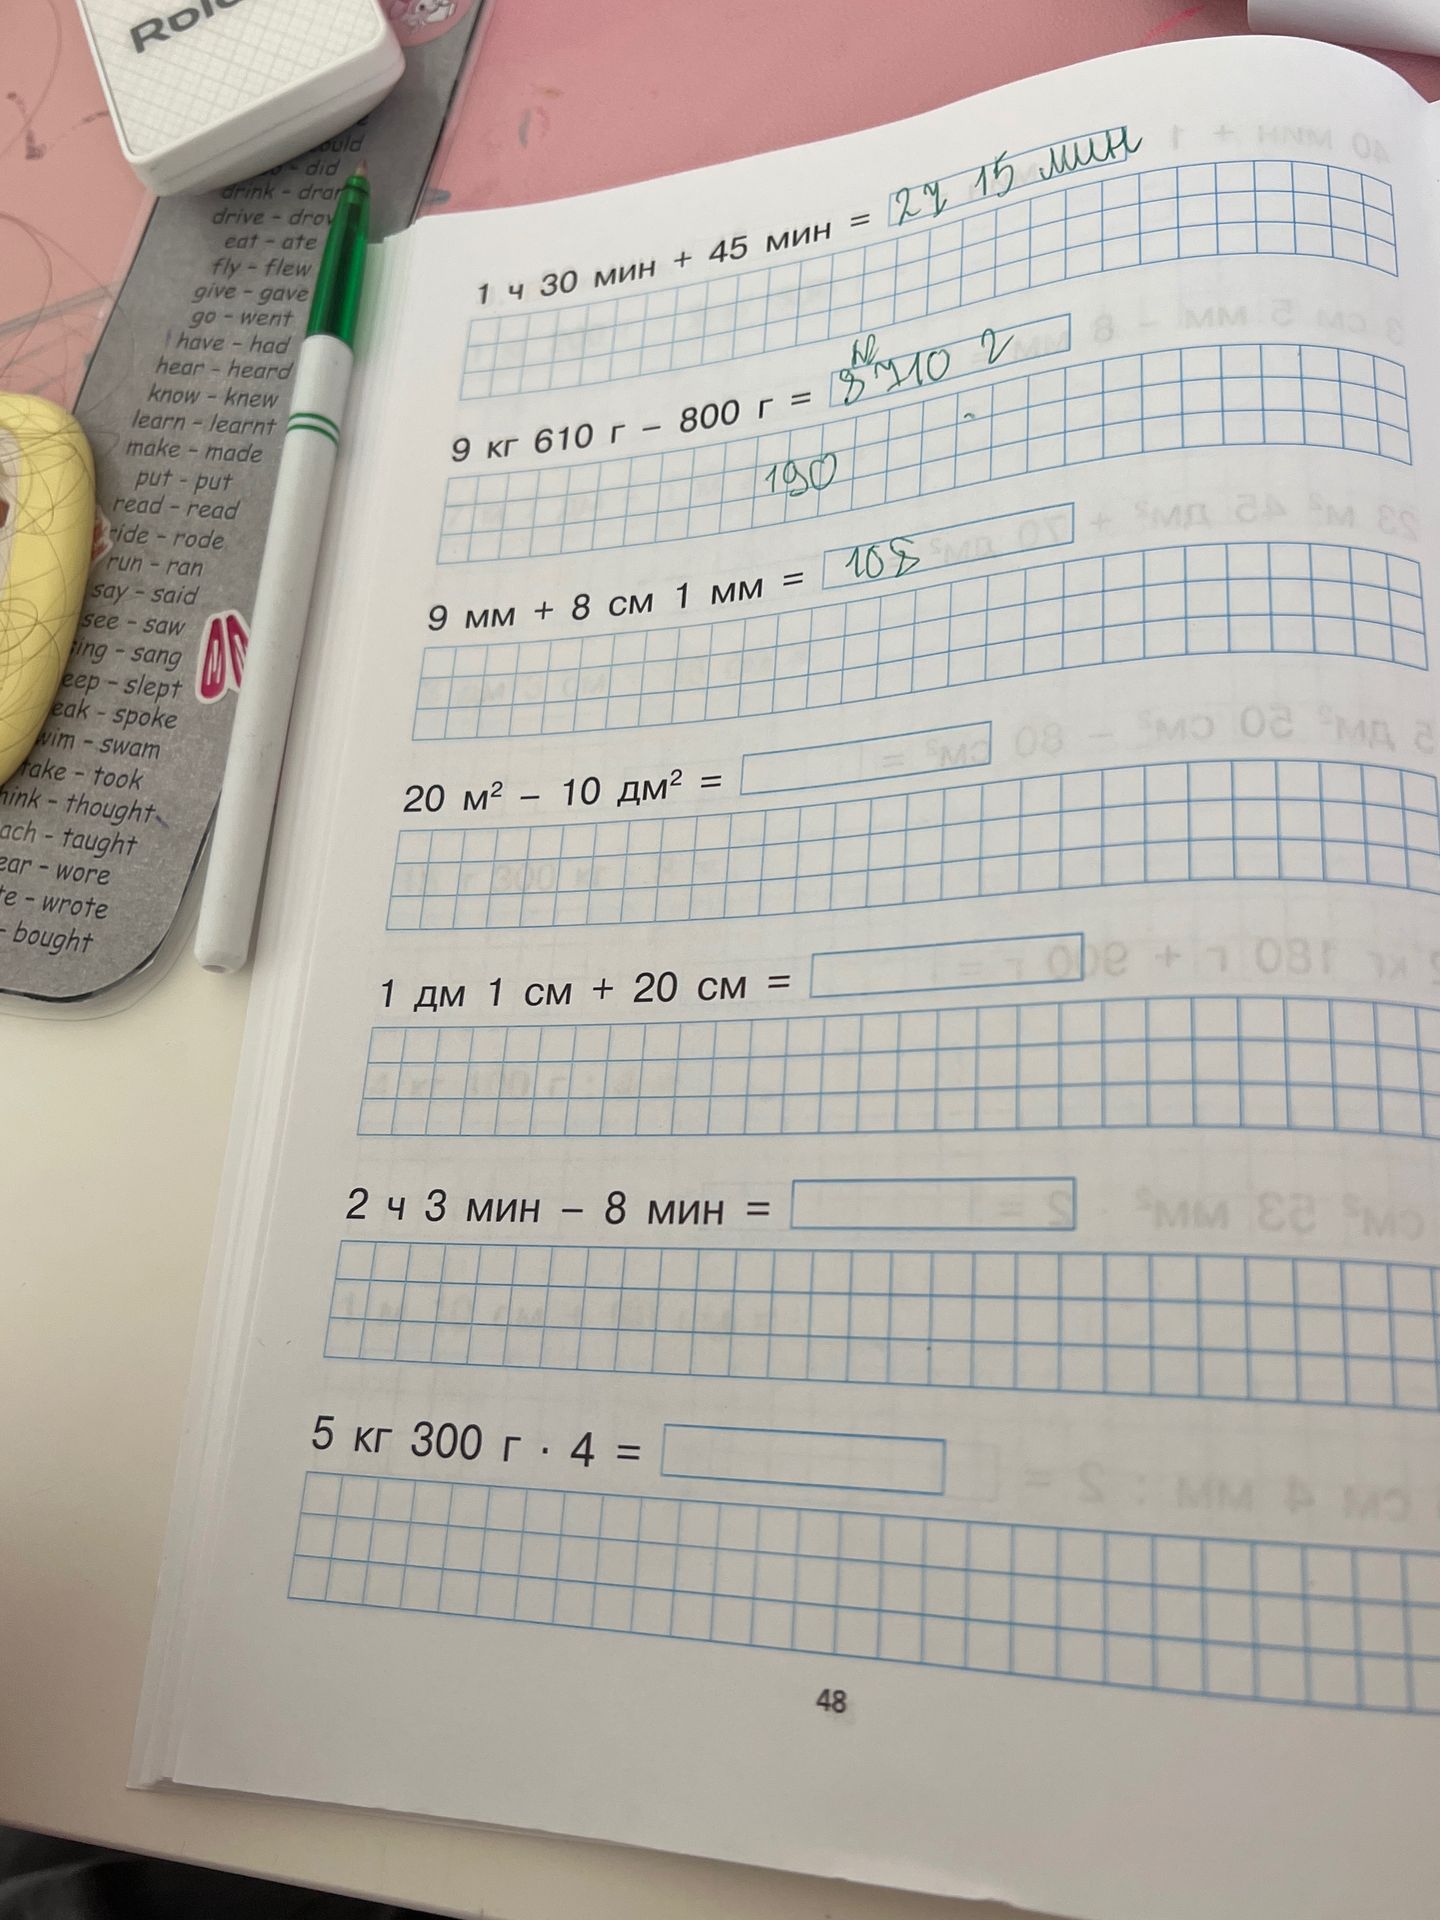 could
- did
drink - dran
drive - drov
eat - ate
fly - flew
give - gave
go - went
have - had
hear - heard
know - knew
learn - learnt
make - made
put - put
read - read
ride - rode
run - ran
say - said
see - saw
sing - sang
eep - slept
eak - spoke
wim - swam
take - took
hink - thought
ach - taught
ear - wore
te - wrote
- bought
1 ч 30 мин + 45 мин = 2ч 15 мин
9 кг 610 г – 800 г = 710 г
190
9 мм + 8 см 1 мм = 108
20 м² – 10 дм² =
1 дм 1 см + 20 см =
2 ч 3 мин – 8 мин =
5 кг 300 г · 4 =
48